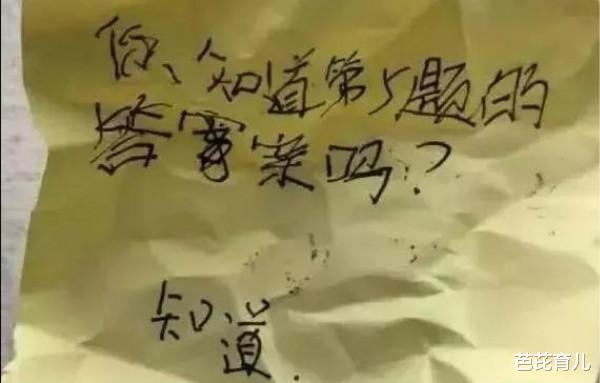 你知道第5题的
答案案吗?
知道.
芭芘育儿